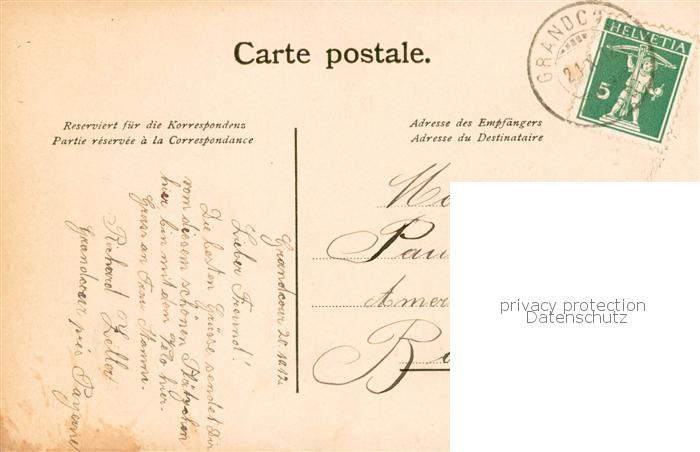 Carte postale.
GRANDCO
HELVETIA
5
Reserviert für die Korrespondenz
Partie réservée à la Correspondance
Adresse des Empfängers
Adresse du Destinataire
Grandcour 20.10.12
Lieber Freund!
Die besten Grüsse sendet dir
vom diesem schönen Plätzchen
hier, bin mit dem Velo hier.
Gruss an Frau Stamm.
Richard
Grandcour près Payerne
Pau
Amer
privacy protection
Datenschutz